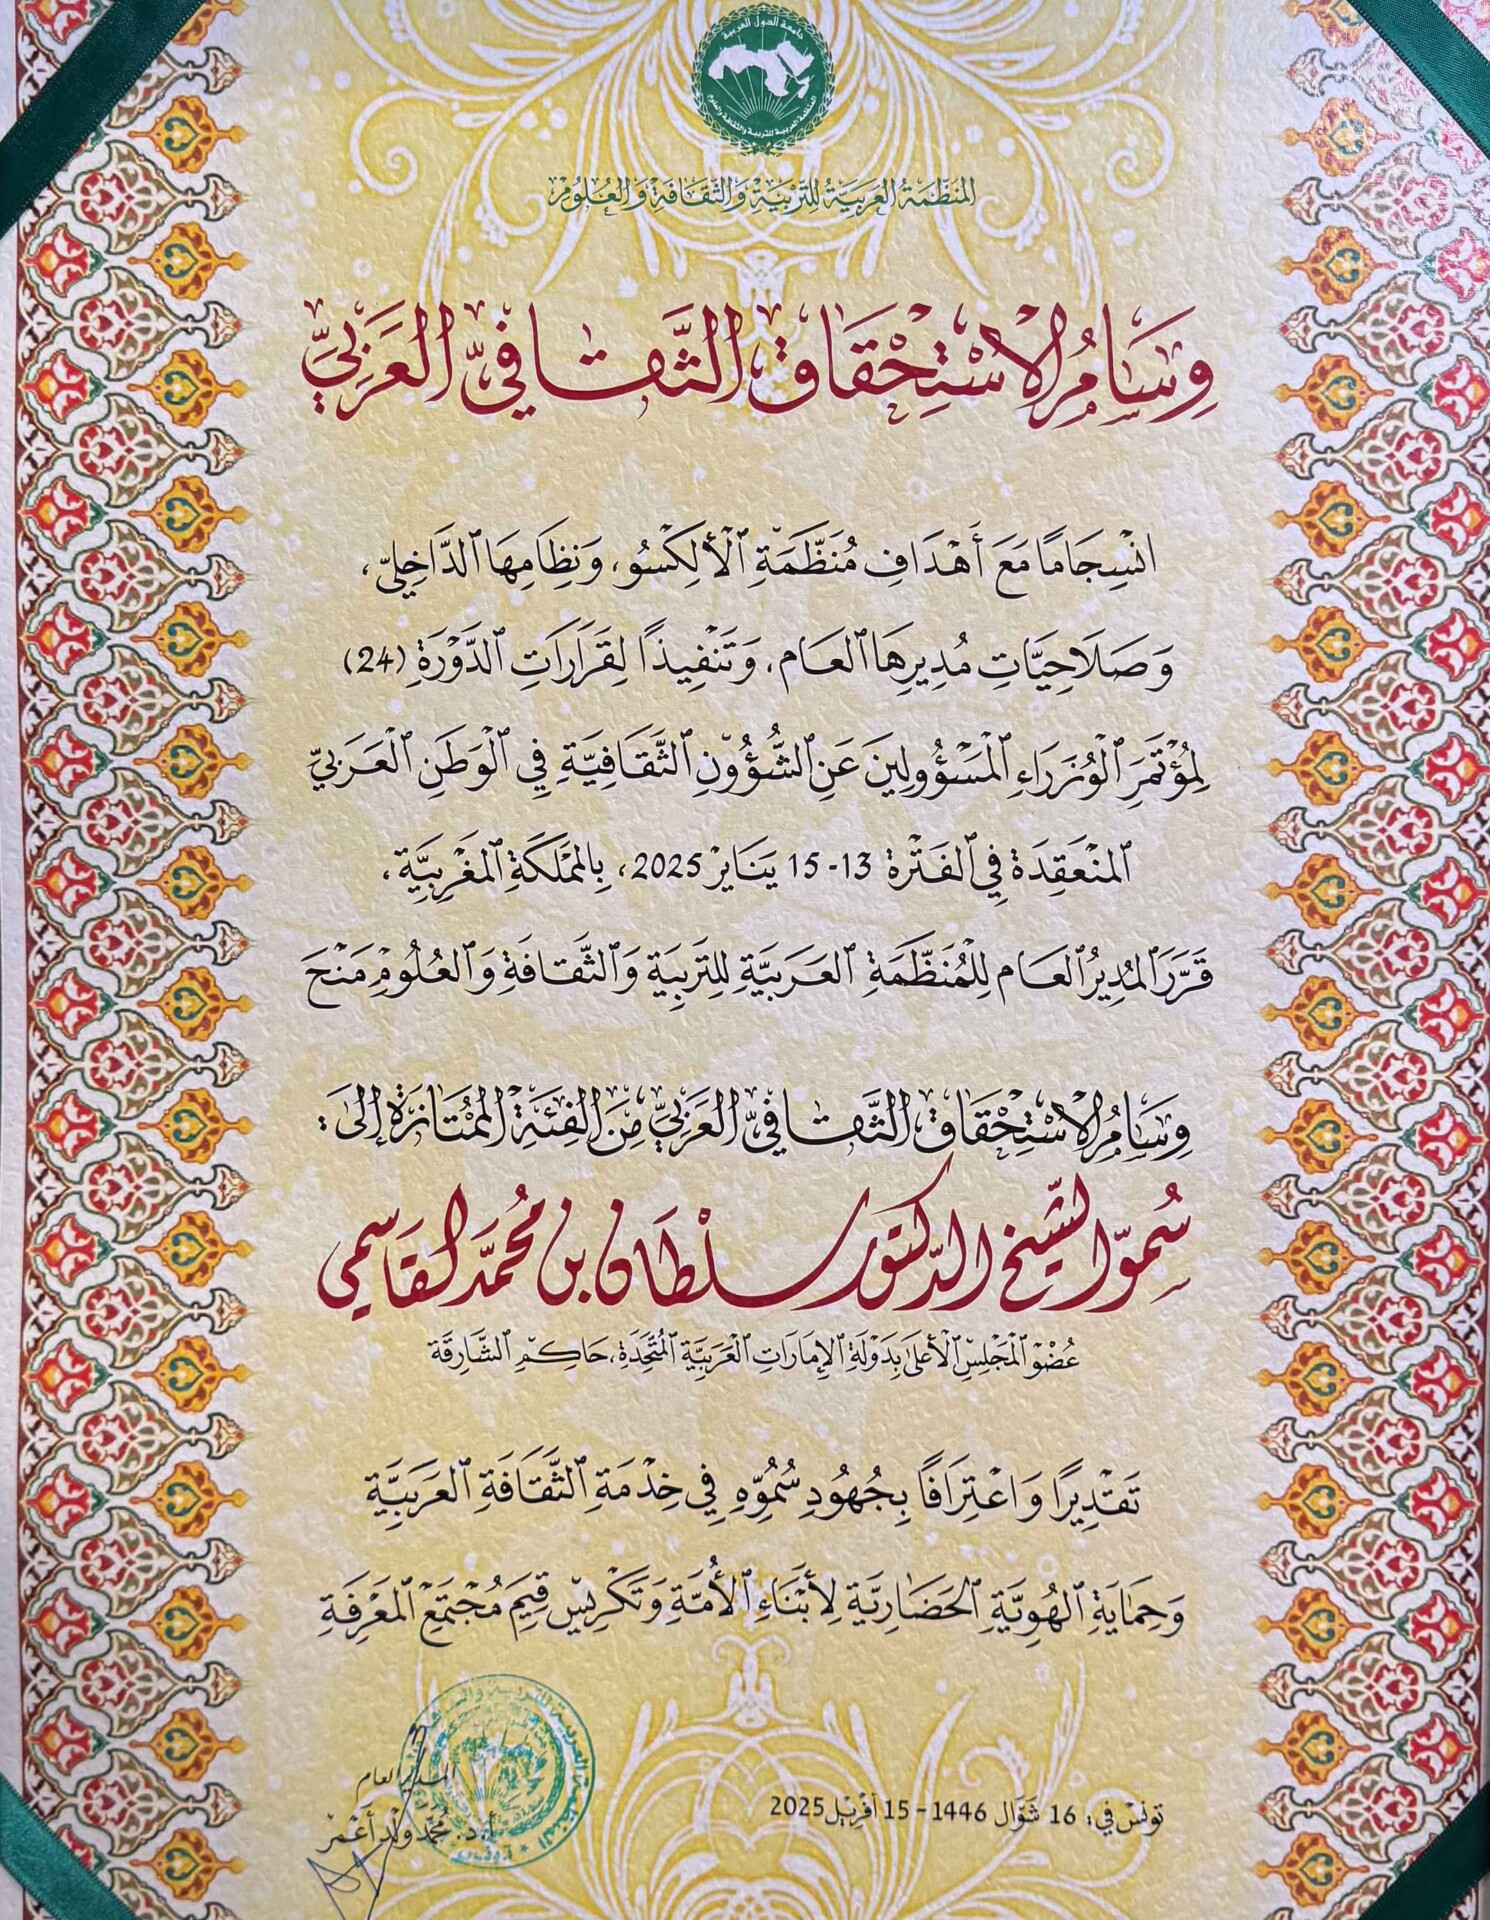 جامعة الدول العربية
المنظمة العربية للتربية والثقافة والعلوم
المُنَظَّمَةُ العَرَبِيَّةُ لِلتَّرْبِيَةِ وَالثَّقَافَةِ وَالعُلُومْ
وِسَامُ الاسْتِحْقَاقِ الثَّقَافِيِّ العَرَبِيِّ
انْسِجَامًا مَعَ أَهْدَافِ مُنَظَّمَةِ الْأَلِكْسُو، وَنِظَامِهَا الدَّاخِلِيِّ،
وَصَلَاحِيَّاتِ مُدِيرِهَا العَام، وَتَنْفِيذًا لِقَرَارَاتِ الدَّوْرَةِ (24)
لِمُؤْتَمَرِ الْوُزَرَاءِ الْمَسْؤُولِينَ عَنِ الشُّؤُونِ الثَّقَافِيَّةِ فِي الْوَطَنِ الْعَرَبِيِّ
المُنْعَقِدَة فِي الفَتْرَة 13-15 يَنَايِرْ 2025، بِالمَمْلَكَةِ المَغْرِبِيَّةِ،
قَرَّرَ المُدِيرُ العَام لِلْمُنَظَّمَةِ العَرَبِيَّةِ لِلتَّرْبِيَةِ وَالثَّقَافَةِ وَالعُلُومِ مَنْحَ
وِسَامُ الاسْتِحْقَاقِ الثَّقَافِيِّ العَرَبِيِّ مِنَ الفِئَةِ المُمْتَازَةِ إِلَى:
سُموّ الشّيخ الدّكتور سلْطَان بن مُحمَّد القَاسمي
عُضْوُ الْمَجْلِسِ الْأَعْلَى بِدَوْلَةِ الإِمَارَاتِ الْعَرَبِيَّةِ الْمُتَّحِدَةِ، حَاكِمِ الشَّارِقَة
تَقْدِيرًا وَاعْتِرَافًا بِجُهُودِ سُمُوِّهِ فِي خِدْمَةِ الثَّقَافَةِ العَرَبِيَّةِ
وَحِمَايَةِ الهُوِيَّةِ الحَضَارِيَّةِ لِأَبْنَاءِ الأُمَّةِ وَتَكْرِيسِ قِيَمِ مُجْتَمَعِ المَعْرِفَةِ
تونس في: 16 شَوَّال 1446 - 15 أفريل 2025
المدير العام
أ.د. محمّد ولد أعْمَر